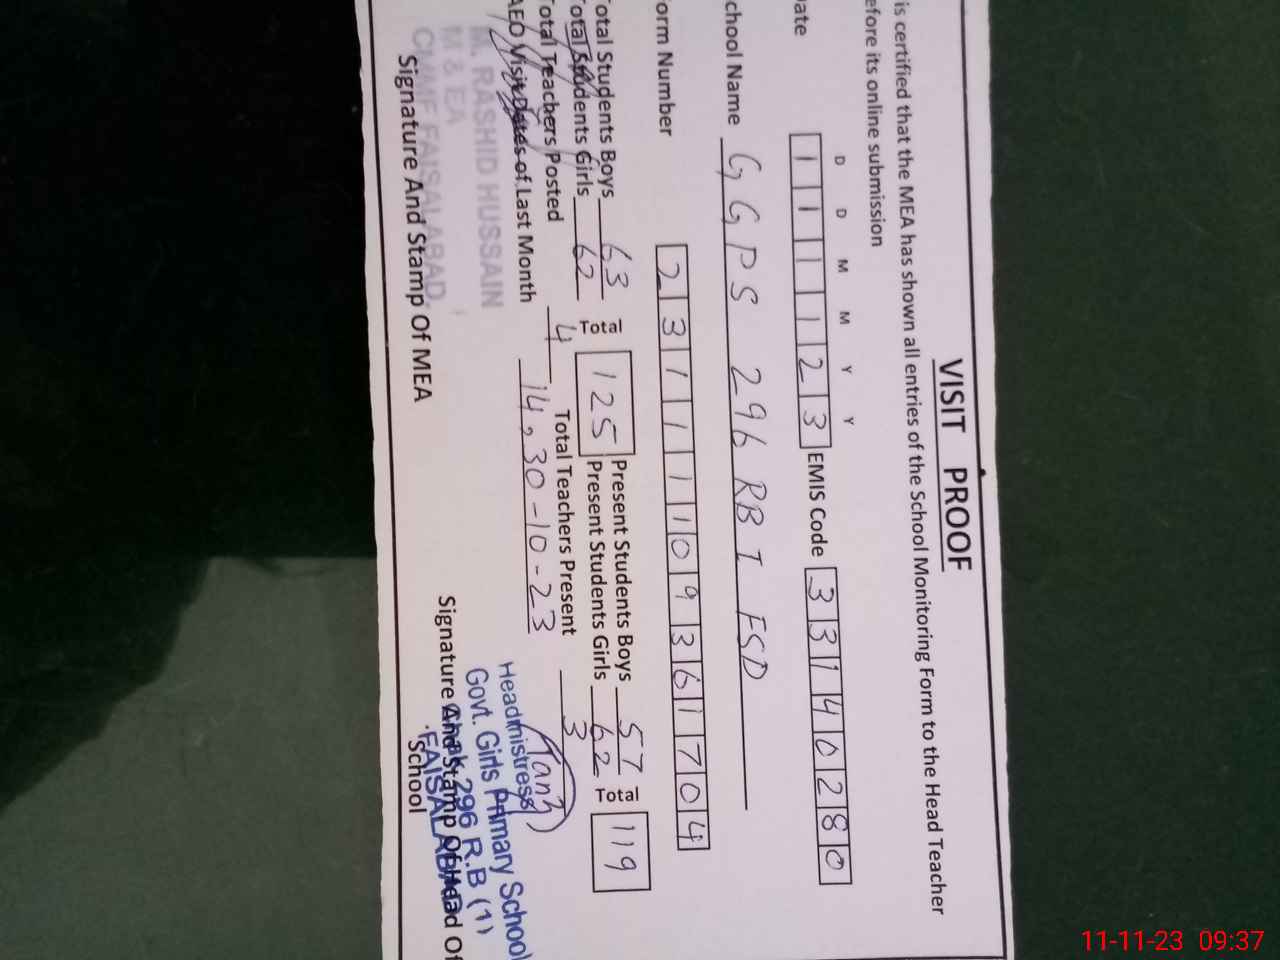 VISIT PROOF
is certified that the MEA has shown all entries of the School Monitoring Form to the Head Teacher
efore its online submission
D D M M Y Y
ate 111123 EMIS Code 33140280
chool Name GGPS 296 RB I FSD
orm Number 23111109361704
otal Students Boys 63 Total 125 Present Students Boys 57 Total 119
otal Students Girls 62 Present Students Girls 62
otal Teachers Posted 4 Total Teachers Present 3
AEO Visit Dates of Last Month 14, 30-10-23
M. RASHID HUSSAIN
M & EA
CMMF FAISALABAD.
Signature And Stamp Of MEA
Headmistress
Govt. Girls Primary School
Chak 296 R.B (1)
FAISALABAD
Signature And Stamp Of Head Of
School
11-11-23 09:37